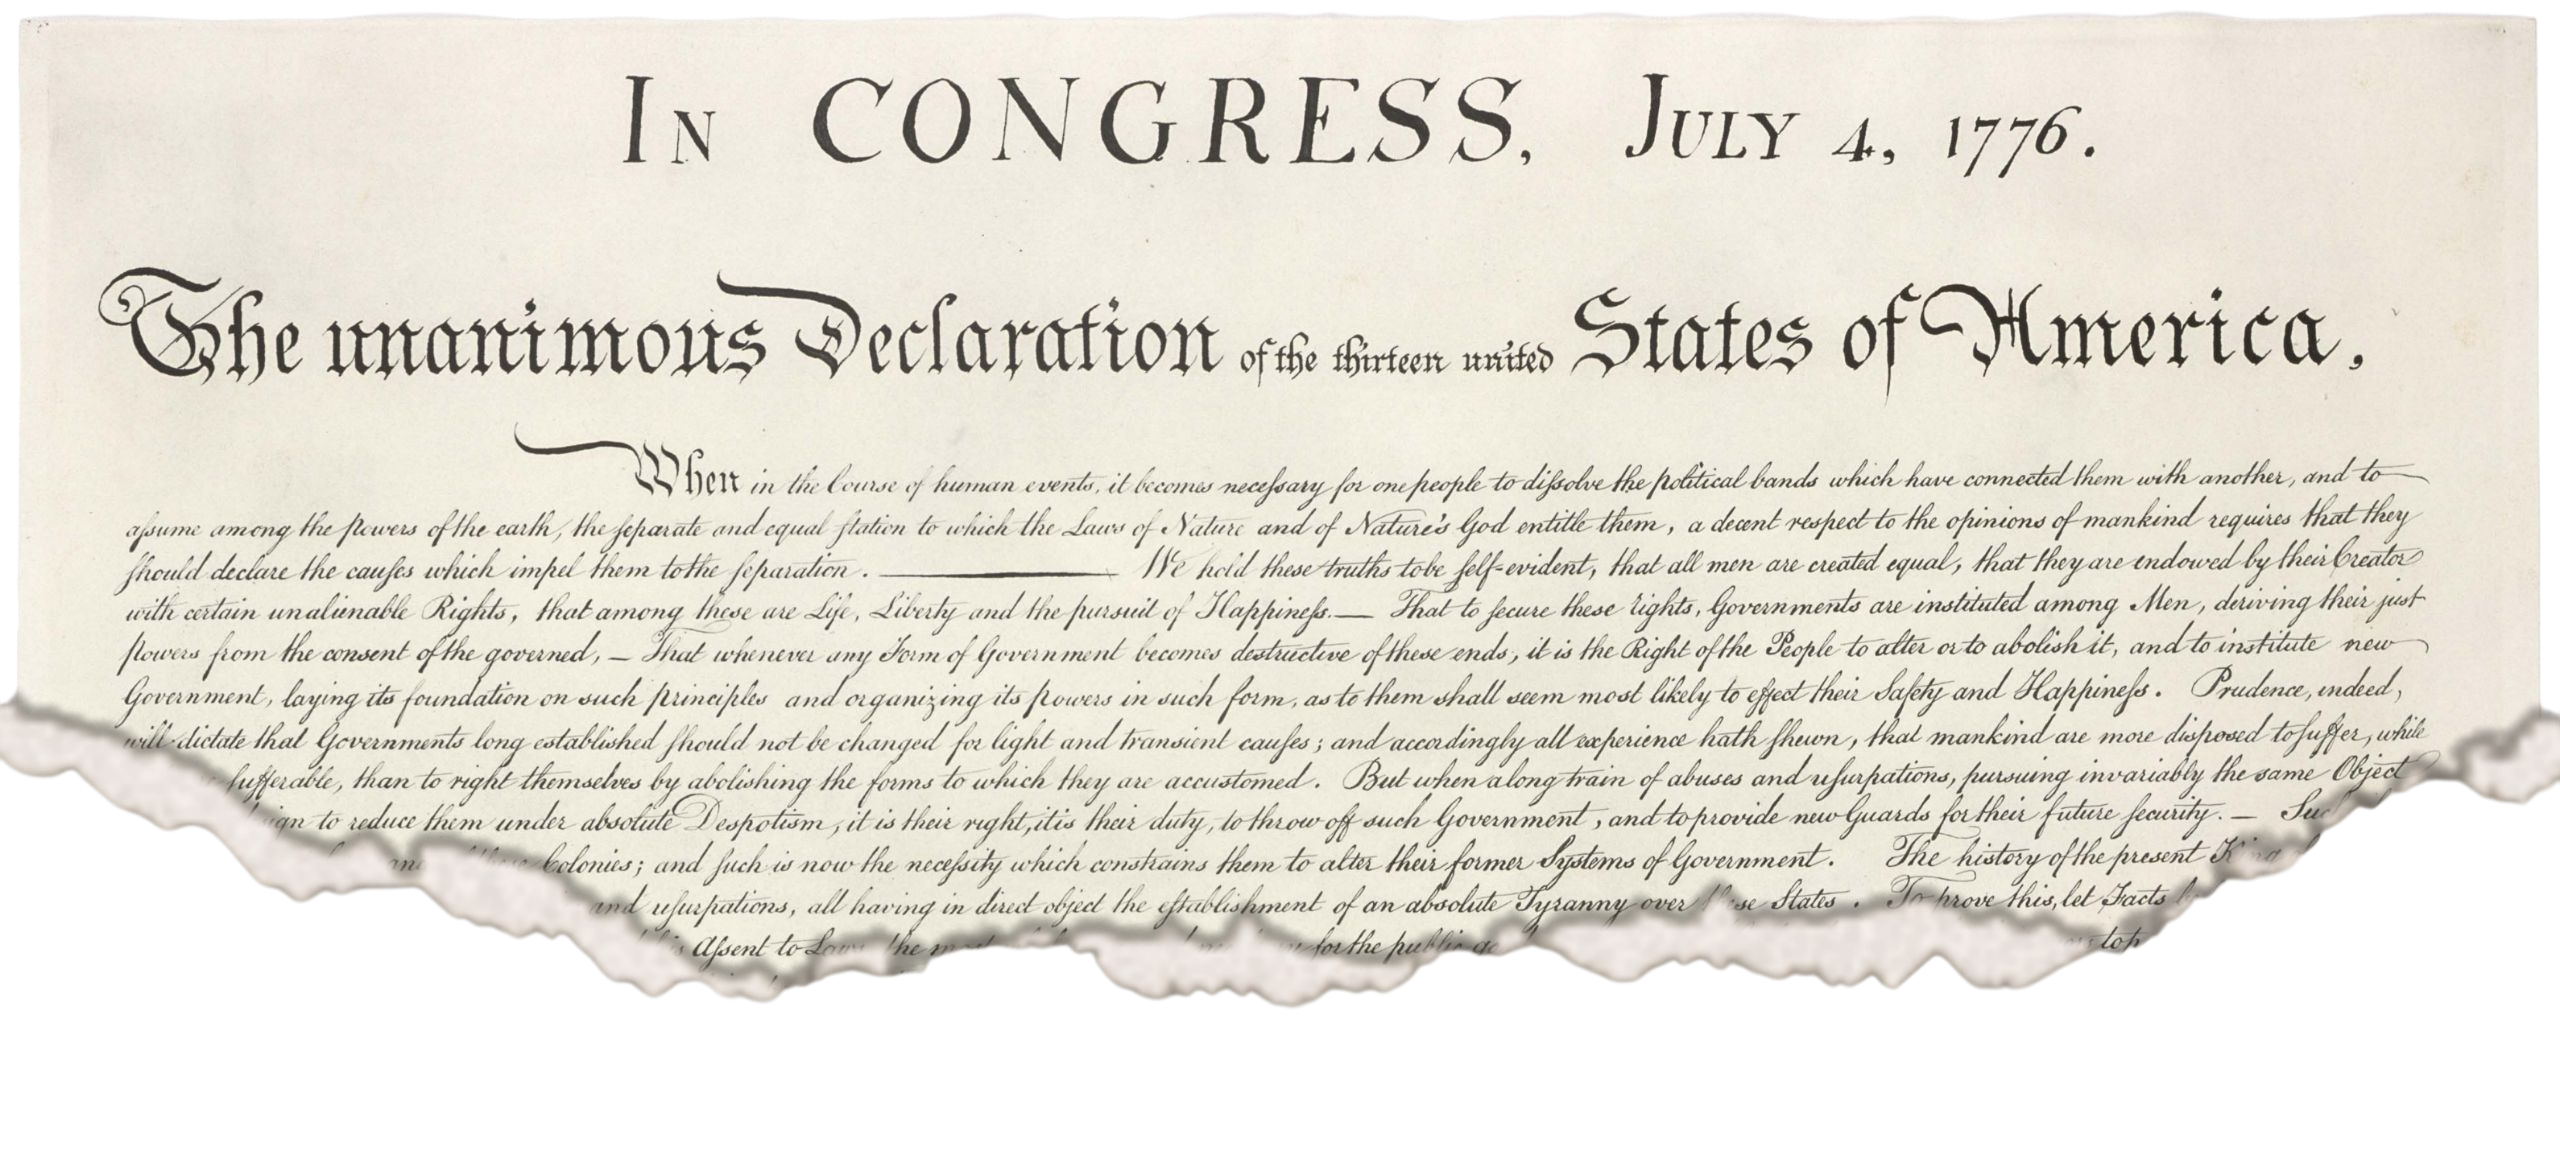 In CONGRESS, July 4, 1776.
The unanimous Declaration of the thirteen united States of America,
When in the Course of human events, it becomes neceſsary for one people to diſsolve the political bands which have connected them with another, and to
aſsume among the powers of the earth, the ſeparate and equal ſtation to which the Laws of Nature and of Nature's God entitle them, a decent respect to the opinions of mankind requires that they
ſhould declare the cauſes which impel them to the ſeparation. — We hold these truths to be ſelf-evident, that all men are created equal, that they are endowed by their Creator
with certain unalienable Rights, that among these are Life, Liberty and the pursuit of Happineſs. — That to ſecure these rights, Governments are instituted among Men, deriving their just
powers from the consent of the governed, — That whenever any Form of Government becomes destructive of these ends, it is the Right of the People to alter or to abolish it, and to institute new
Government, laying its foundation on such principles and organizing its powers in such form, as to them shall seem most likely to effect their Safety and Happineſs. Prudence, indeed,
will dictate that Governments long established ſhould not be changed for light and transient cauſes; and accordingly all experience hath ſhewn, that mankind are more disposed to ſuffer, while
ſufferable, than to right themselves by abolishing the forms to which they are accustomed. But when a long train of abuses and uſurpations, pursuing invariably the same Object
to reduce them under absolute Despotism, it is their right, it is their duty, to throw off such Government, and to provide new Guards for their future ſecurity. —
Colonies; and ſuch is now the neceſsity which constrains them to alter their former Systems of Government. The history of the present King
and uſurpations, all having in direct object the eſtablishment of an absolute Tyranny over States. To prove this, let Facts
Aſsent to for the public